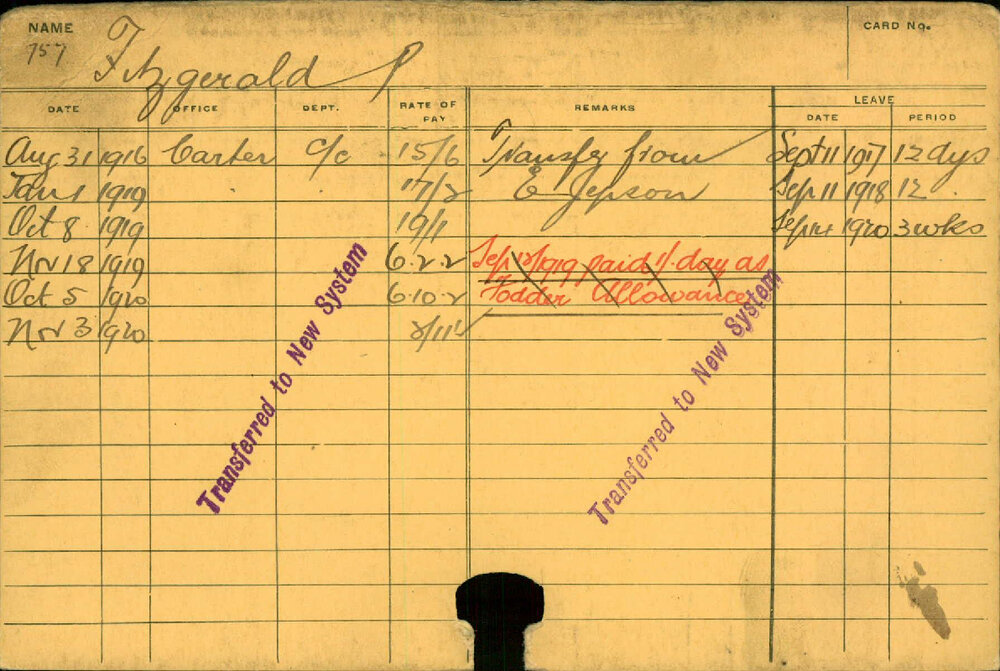 NAME
CARD No.
757
Fitzgerald P
LEAVE
DATE OFFICE DEPT. RATE OF PAY REMARKS DATE PERIOD
Aug 31 1916 Carter c/c 15/6 Transfr from Sept 11 1917 12 dys
Jan 1 1919 17/2 E Jepson Sep 11 1918 12
Oct 8 1919 19/1 Sep 14 1920 3 wks
Nov 18 1919 6.2.2 Sep 12/1919 paid 1/. day as
Oct 5 1920 6.10.2 Fodder Allowance
Nov 3 1920 2/11
Transferred to New System
Transferred to New System